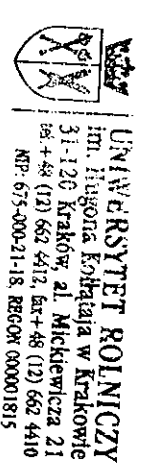 UNIWERSYTET ROLNICZY
im. Hugona Kołłątaja w Krakowie
31-120 Kraków, al. Mickiewicza 21
tel. + 48 (12) 662 4412, fax + 48 (12) 662 4410
NIP: 675-000-21-18, REGON 000001815